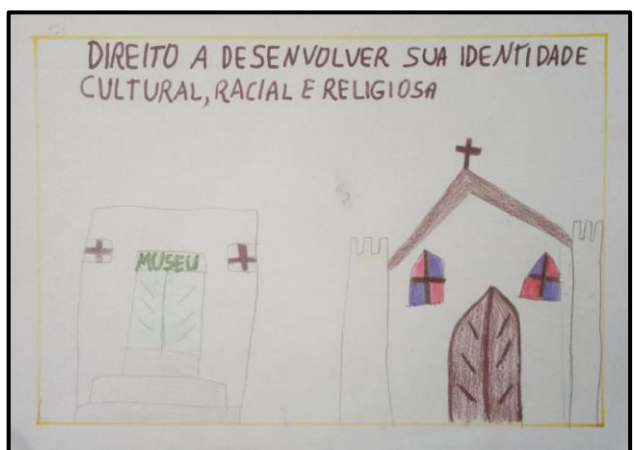 DIREITO A DESENVOLVER SUA IDENTIDADE
CULTURAL, RACIAL E RELIGIOSA
MUSEU